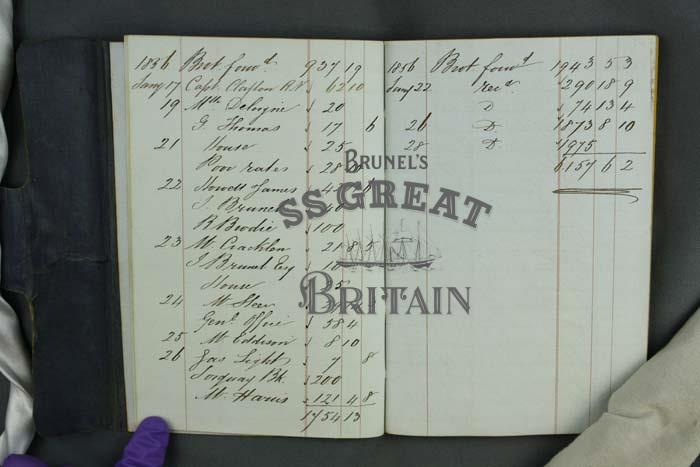 1856 Brot. forwd. 937 19
Jany 17 Capt. Claxton R.N. 62 10
19 20
G. Thomas 17 6
21 House 25
Poor rates 28
22 James
R Brodie 100
23 Mr. Cracklon 21 8 5
I Brunel Esq 10
House
24 Mr
Genl. Office 58 4
25 Mr Eddison 8 10
26 Gas Light 7 8
Torquay Bk. 200
Mr. Harris 121 4 8
1754 13
1856 Brot. forwd. 1943 5 3
Jany 22 recd. 290 18 9
D. 74 13 4
26 D. 1873 8 10
28 D. 1975
6157 6 2
BRUNEL'S
SS GREAT
BRITAIN